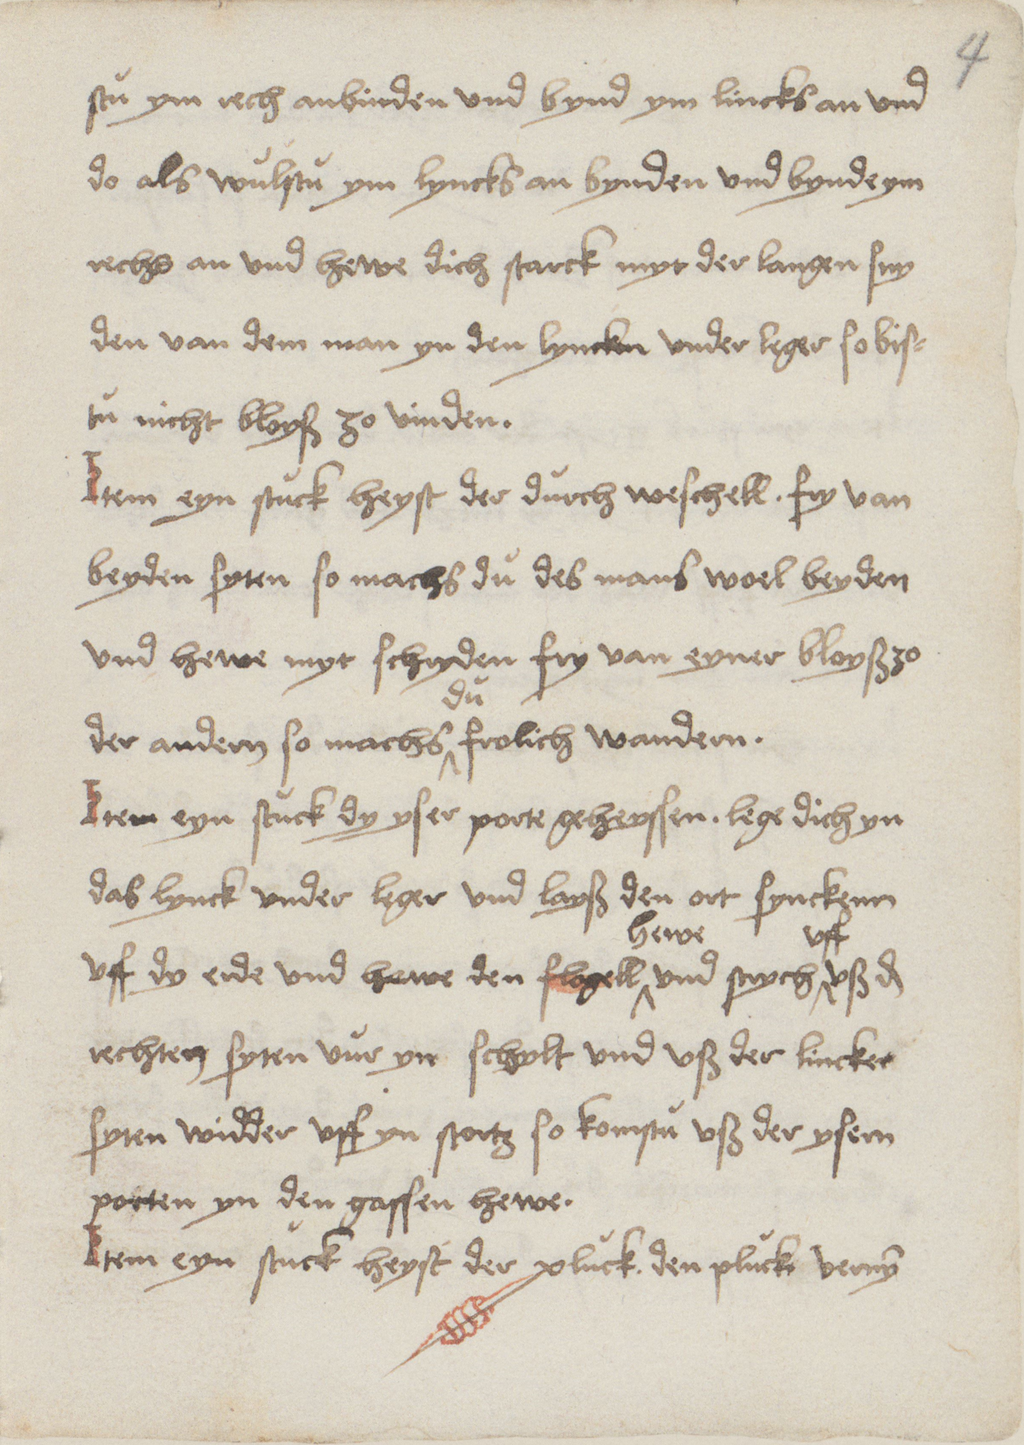 4
stu ym rech anbinden vnd bynd ym lincks an vnd
do als wulstu ym lyncks an bynden vnd bynde ym
rechs an vnd hewe dich starck myt der langen sny
den van dem man yn den lyncken vnder leger so bis-
tu nicht bloyß zo vinden.
Item eyn stuck heyst der durch weschell. fry van
beyden syten so machs du des mans woel beyden
vnd hewe myt schryden fry van eyner bloyß zo
du
der andern so machs frolich wandern.
Item eyn stuck dy yser porte geheyssen. lege dich yn
das lynck vnder leger vnd layß den ort synckenn
hewe vff
vff dy erde vnd hewe den flogell vnd strych vß d
rechten syten vur yn schylt vnd vß der lincker
syten widder vff yn stortz so komstu vß der ysern
porten yn den gassen hewe.
Item eyn stuck heyst der pluck. den pluck verny